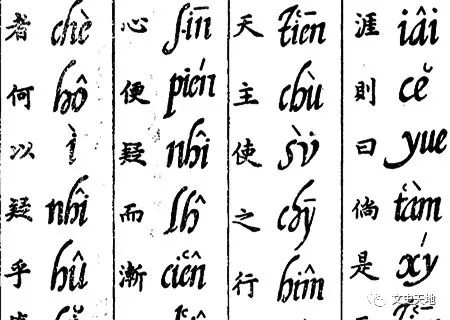 涯 iâi 則 cĕ 曰 yue 倘 tàm 是 xý
天 tiēn 主 chù 使 sù 之 chȳ 行 hîm
心 sīn 便 pién 疑 nhî 而 lhô 漸 ciên
者 chè 何 hô 以 ì 疑 nhî 乎 hû
文史天地